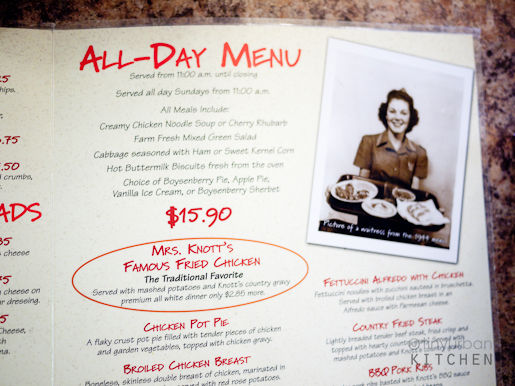 ALL-DAY MENU
Served from 11:00 a.m. until closing
Served all day Sundays from 11:00 a.m.
All Meals Include:
Creamy Chicken Noodle Soup or Cherry Rhubarb
Farm Fresh Mixed Green Salad
Cabbage seasoned with Ham or Sweet Kernel Corn
Hot Buttermilk Biscuits fresh from the oven
Choice of Boysenberry Pie, Apple Pie,
Vanilla Ice Cream, or Boysenberry Sherbet
$15.90
MRS. KNOTT'S
FAMOUS FRIED CHICKEN
The Traditional Favorite
Served with mashed potatoes and Knott's country gravy
premium all white dinner only $2.85 more.
CHICKEN POT PIE
A flaky crust pot pie filled with tender pieces of chicken
and garden vegetables, topped with chicken gravy.
BROILED CHICKEN BREAST
Boneless, skinless double breast of chicken, marinated in
served with red rose potatoes.
Picture of a waitress from the 1944 menu
FETTUCINI ALFREDO WITH CHICKEN
Fettucini noodles with zucchini sauteed in bruschetta.
Served with broiled chicken breast in an
Alfredo sauce with Parmesan cheese.
COUNTRY FRIED STEAK
Lightly breaded tender beef steak, fried crisp and
topped with hearty country
mashed potatoes and Knott's
BBQ PORK RIBS
ribs basted with Knott's BBQ sauce
KITCHEN
5
hips.
5.75
.50
d crumbs,
ce.
ADS
35
cheese
5
cheese on
ur dressing.
5
Cheese,